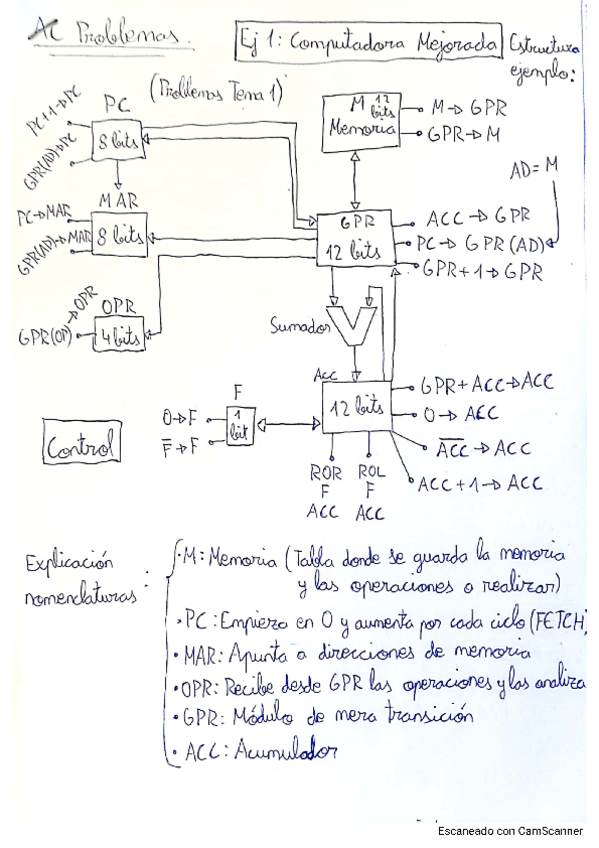 AC Problemas.
Ej 1: Computadora Mejorada
Estructura
ejemplo:
(Problemas Tema 1)
PC+1→PC
GPR(AD)→PC
PC
8 bits
M 12
bits
Memoria
M→GPR
GPR→M
AD = M
PC→MAR
GPR(AD)→MAR
MAR
8 bits
GPR
12 bits
ACC→GPR
PC→GPR(AD)
GPR+1→GPR
GPR(OP)→OPR
OPR
4 bits
Sumador
ACC
12 bits
GPR+ACC→ACC
0→ACC
ACC̅→ACC
ACC+1→ACC
0→F
F̅→F
F
1
bit
Control
ROR
F
ACC
ROL
F
ACC
Explicación
nomenclaturas:
· M: Memoria (Tabla donde se guarda la memoria
y las operaciones a realizar)
· PC: Empieza en 0 y aumenta por cada ciclo (FETCH)
· MAR: Apunta a direcciones de memoria
· OPR: Recibe desde GPR las operaciones y las analiza
· GPR: Módulo de mera transición
· ACC: Acumulador
Escaneado con CamScanner